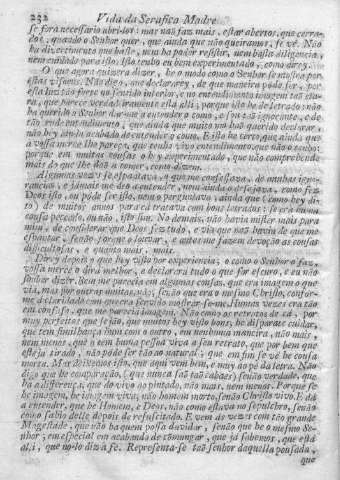 232 Vida da Serafica Madre
se fora necessario abri-los: mas naõ faz mais, estar abertos, que cerrados,
quando o Senhor quer, que ainda que naõ queiramos, se vé. Naõ
ha divertimento que baste, nem ha poder resistir, nem basta diligencia,
nem cuidado para isso. Isto tenho eu bem experimentado, como direy.
O que agora quizera dizer, he o modo com o Senhor se mostra por
estas visoens. Naõ digo, que declararey, de que maneira póde ser, por
esta luz taõ forte no sentido interior, e no entendimento imagem taõ clara,
que parece verdadeiramente está alli; porque isto he de letrados: naõ
ha querido o Senhor dar-me a entender o como, e sou taõ ignorante, e de
taõ rude entendimento, que ainda que muito mo haõ querido declarar,
naõ hey ainda acabado de entender o como. E isto he certo, que ainda que
a vossa merce lhe pareça, que tenho vivo entendimento, que naõ o tenho;
porque em muitas cousas o hey experimentado, que naõ comprehende
mais do que lhe daõ a comer, como dizem.
Algumas vezes se espantava, o que me confessava, de minhas ignorancias,
e jámais me deo a entender, nem ainda o desejava, como fez
Deos isto, ou pode ser isto, nem o perguntava, ainda que (como hey dito)
de muitos annos para cá tratava com bons letrados: se era huma
cousa peccado, ou naõ, isto sim. No demais, naõ havia mister mais para
mim, de considerar que Deos fez tudo, e via que naõ havia de que me
espantar, senaõ porque o louvar, e antes me fazem devoçaõ as cousas
difficultosas, e quanto mais, mais.
Direy depois o que hey visto por experiencia; o como o Senhor o faz,
vossa merce o dirá melhor, e declarará tudo o que for escuro, e eu naõ
souber dizer. Bem me parecia em algumas cousas, que era imagem o que
via, mas por outras muitas naõ; senaõ que era o mesmo Christo, conforme
a claridade com que era servido mostrar-se-me. Humas vezes era taõ
em confuso, que me parecia imagem. Naõ como os retratos de cá, por
muy perfeitos que sejaõ, que muitos hey visto bons, he disparate cuidar,
que tem similhança hum com o outro, em nenhuma maneira, naõ mais,
nem menos, que o tem huma pessoa viva a seu retrato, que por bem que
esteja tirado, naõ póde ser taõ ao natural; que em fim se vé he cousa
morta. Mas deixemos isto, que aqui vem bem, e muy ao pé da letra. Naõ
digo que he comparaçaõ, (que nunca saõ taõ cabaes) senaõ verdade, que
ha a differença, que do vivo ao pintado, naõ mais, nem menos. Porque se
he imagem, he imagem viva; naõ homem morto, senaõ Christo vivo. E dá
a entender, que he Homem, e Deos, naõ como estava no sepulchro, senaõ
como sahio delle depois de resuscitado. E vem às vezes com taõ grande
Magestade, que naõ ha quem possa duvidar, senaõ que he o mesmo Senhor,
em especial em acabando de cõmungar, que já sabemos, que está
alli, que no-lo diz a fé. Representa-se taõ senhor daquella pousada,
que